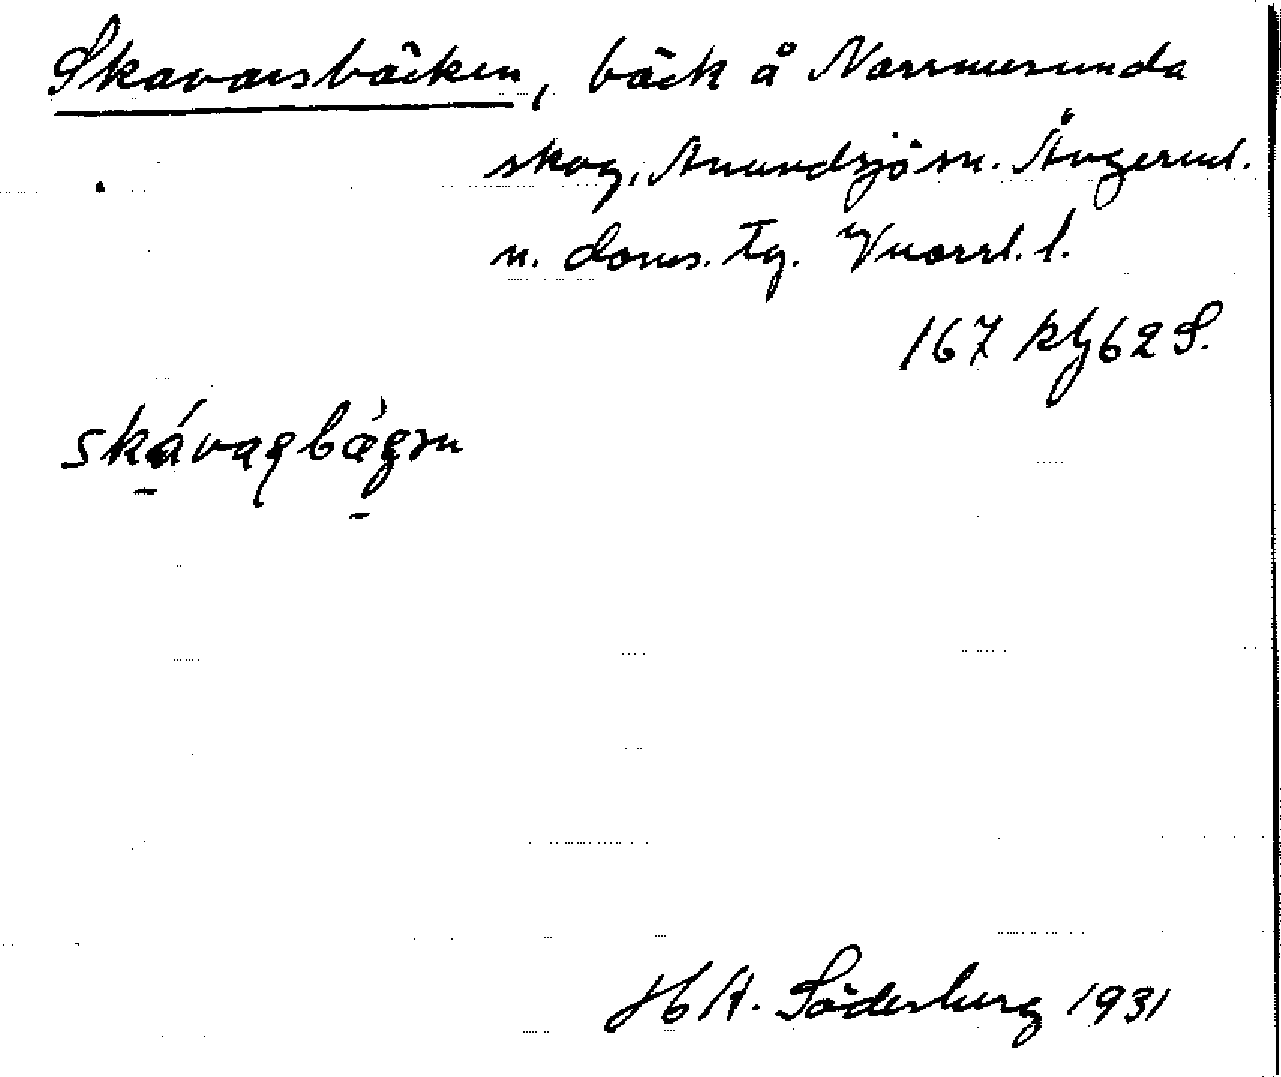 Skavarsbäcken, bäck å Norrmesunda
skog, Anundsjö sn. Ångerml.
n. doms. Tg. Vnorrl. l.
167 kbg 62 S.
skávaqbägsn
H A. Söderberg 1931